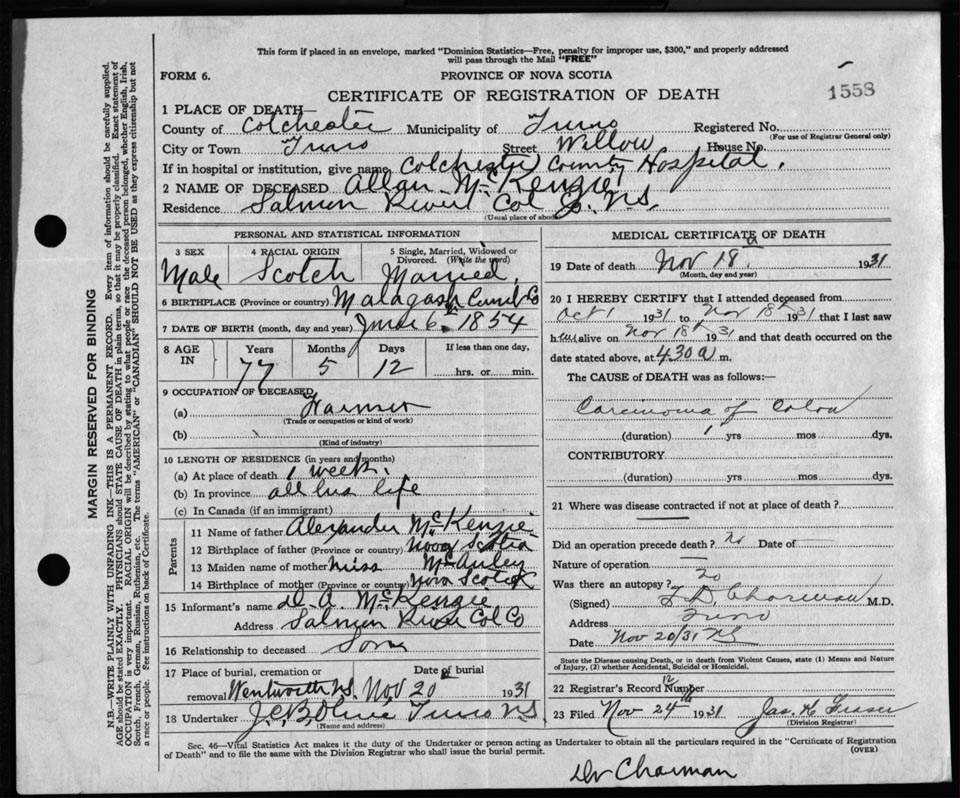 This form if placed in an envelope, marked "Dominion Statistics—Free, penalty for improper use, $300," and properly addressed
will pass through the Mail "FREE"
FORM 6.
PROVINCE OF NOVA SCOTIA
CERTIFICATE OF REGISTRATION OF DEATH
1558
1 PLACE OF DEATH—
County of Colchester Municipality of Truro Registered No.
(For use of Registrar General only)
City or Town Truro Street Willow House No.
If in hospital or institution, give name Colchester County Hospital.
2 NAME OF DECEASED Allan McKenzie
Residence Salmon River Col Co. N.S.
(Usual place of abode)
PERSONAL AND STATISTICAL INFORMATION
3 SEX 4 RACIAL ORIGIN 5 Single, Married, Widowed or Divorced. (Write the word)
Male Scotch Married.
6 BIRTHPLACE (Province or country) Malagash Cumb Co
7 DATE OF BIRTH (month, day and year) June 6th 1854
8 AGE IN Years Months Days If less than one day,
77 5 12 hrs. or min.
9 OCCUPATION OF DECEASED
(a) Farmer
(Trade or occupation or kind of work)
(b)
(Kind of industry)
10 LENGTH OF RESIDENCE (in years and months)
(a) At place of death 1 week.
(b) In province all his life
(c) In Canada (if an immigrant)
Parents
11 Name of father Alexander McKenzie
12 Birthplace of father (Province or country) Nova Scotia
13 Maiden name of mother Miss McAuley
14 Birthplace of mother (Province or country) Nova Scotia
15 Informant's name D. A. McKenzie
Address Salmon River Col Co
16 Relationship to deceased Son
17 Place of burial, cremation or Date of burial
removal Wentworth N.S. Nov 20 1931
18 Undertaker J.C.B. Olive Truro N.S
(Name and address)
MEDICAL CERTIFICATE OF DEATH
19 Date of death Nov 18 1931
(Month, day and year)
20 I HEREBY CERTIFY that I attended deceased from
Oct 1 1931 to Nov 18th 1931 that I last saw
him alive on Nov 18th 1931 and that death occurred on the
date stated above, at 4.30 a m.
The CAUSE of DEATH was as follows:—
Carcinoma of Colon
(duration) 1 yrs mos dys.
CONTRIBUTORY
(duration) yrs mos dys.
21 Where was disease contracted if not at place of death?
Did an operation precede death? No Date of
Nature of operation
Was there an autopsy? no
(Signed) Charman M.D.
Address Truro
Date Nov 20/31 NS
State the Disease causing Death, or in death from Violent Causes, state (1) Means and Nature
of Injury, (2) whether Accidental, Suicidal or Homicidal.
22 Registrar's Record Number 12
23 Filed Nov 24th 1931 Jas. H Fraser
(Division Registrar)
Sec. 46—Vital Statistics Act makes it the duty of the Undertaker or person acting as Undertaker to obtain all the particulars required in the "Certificate of Registration
of Death" and to file the same with the Division Registrar who shall issue the burial permit.
(OVER)
Dr Charman
MARGIN RESERVED FOR BINDING
N.B.—WRITE PLAINLY WITH UNFADING INK—THIS IS A PERMANENT RECORD. Every item of information should be carefully supplied.
AGE should be stated EXACTLY. PHYSICIANS should STATE CAUSE OF DEATH in plain terms, so that it may be properly classified. Exact statement of
OCCUPATION is very important. RACIAL ORIGIN will be described by stating to what people or race the deceased person belonged, whether English, Irish,
Scotch, French, German, Russian, Ruthenian, etc. The terms "AMERICAN" or "CANADIAN" SHOULD NOT BE USED as they express citizenship but not
a race or people. See instructions on back of Certificate.